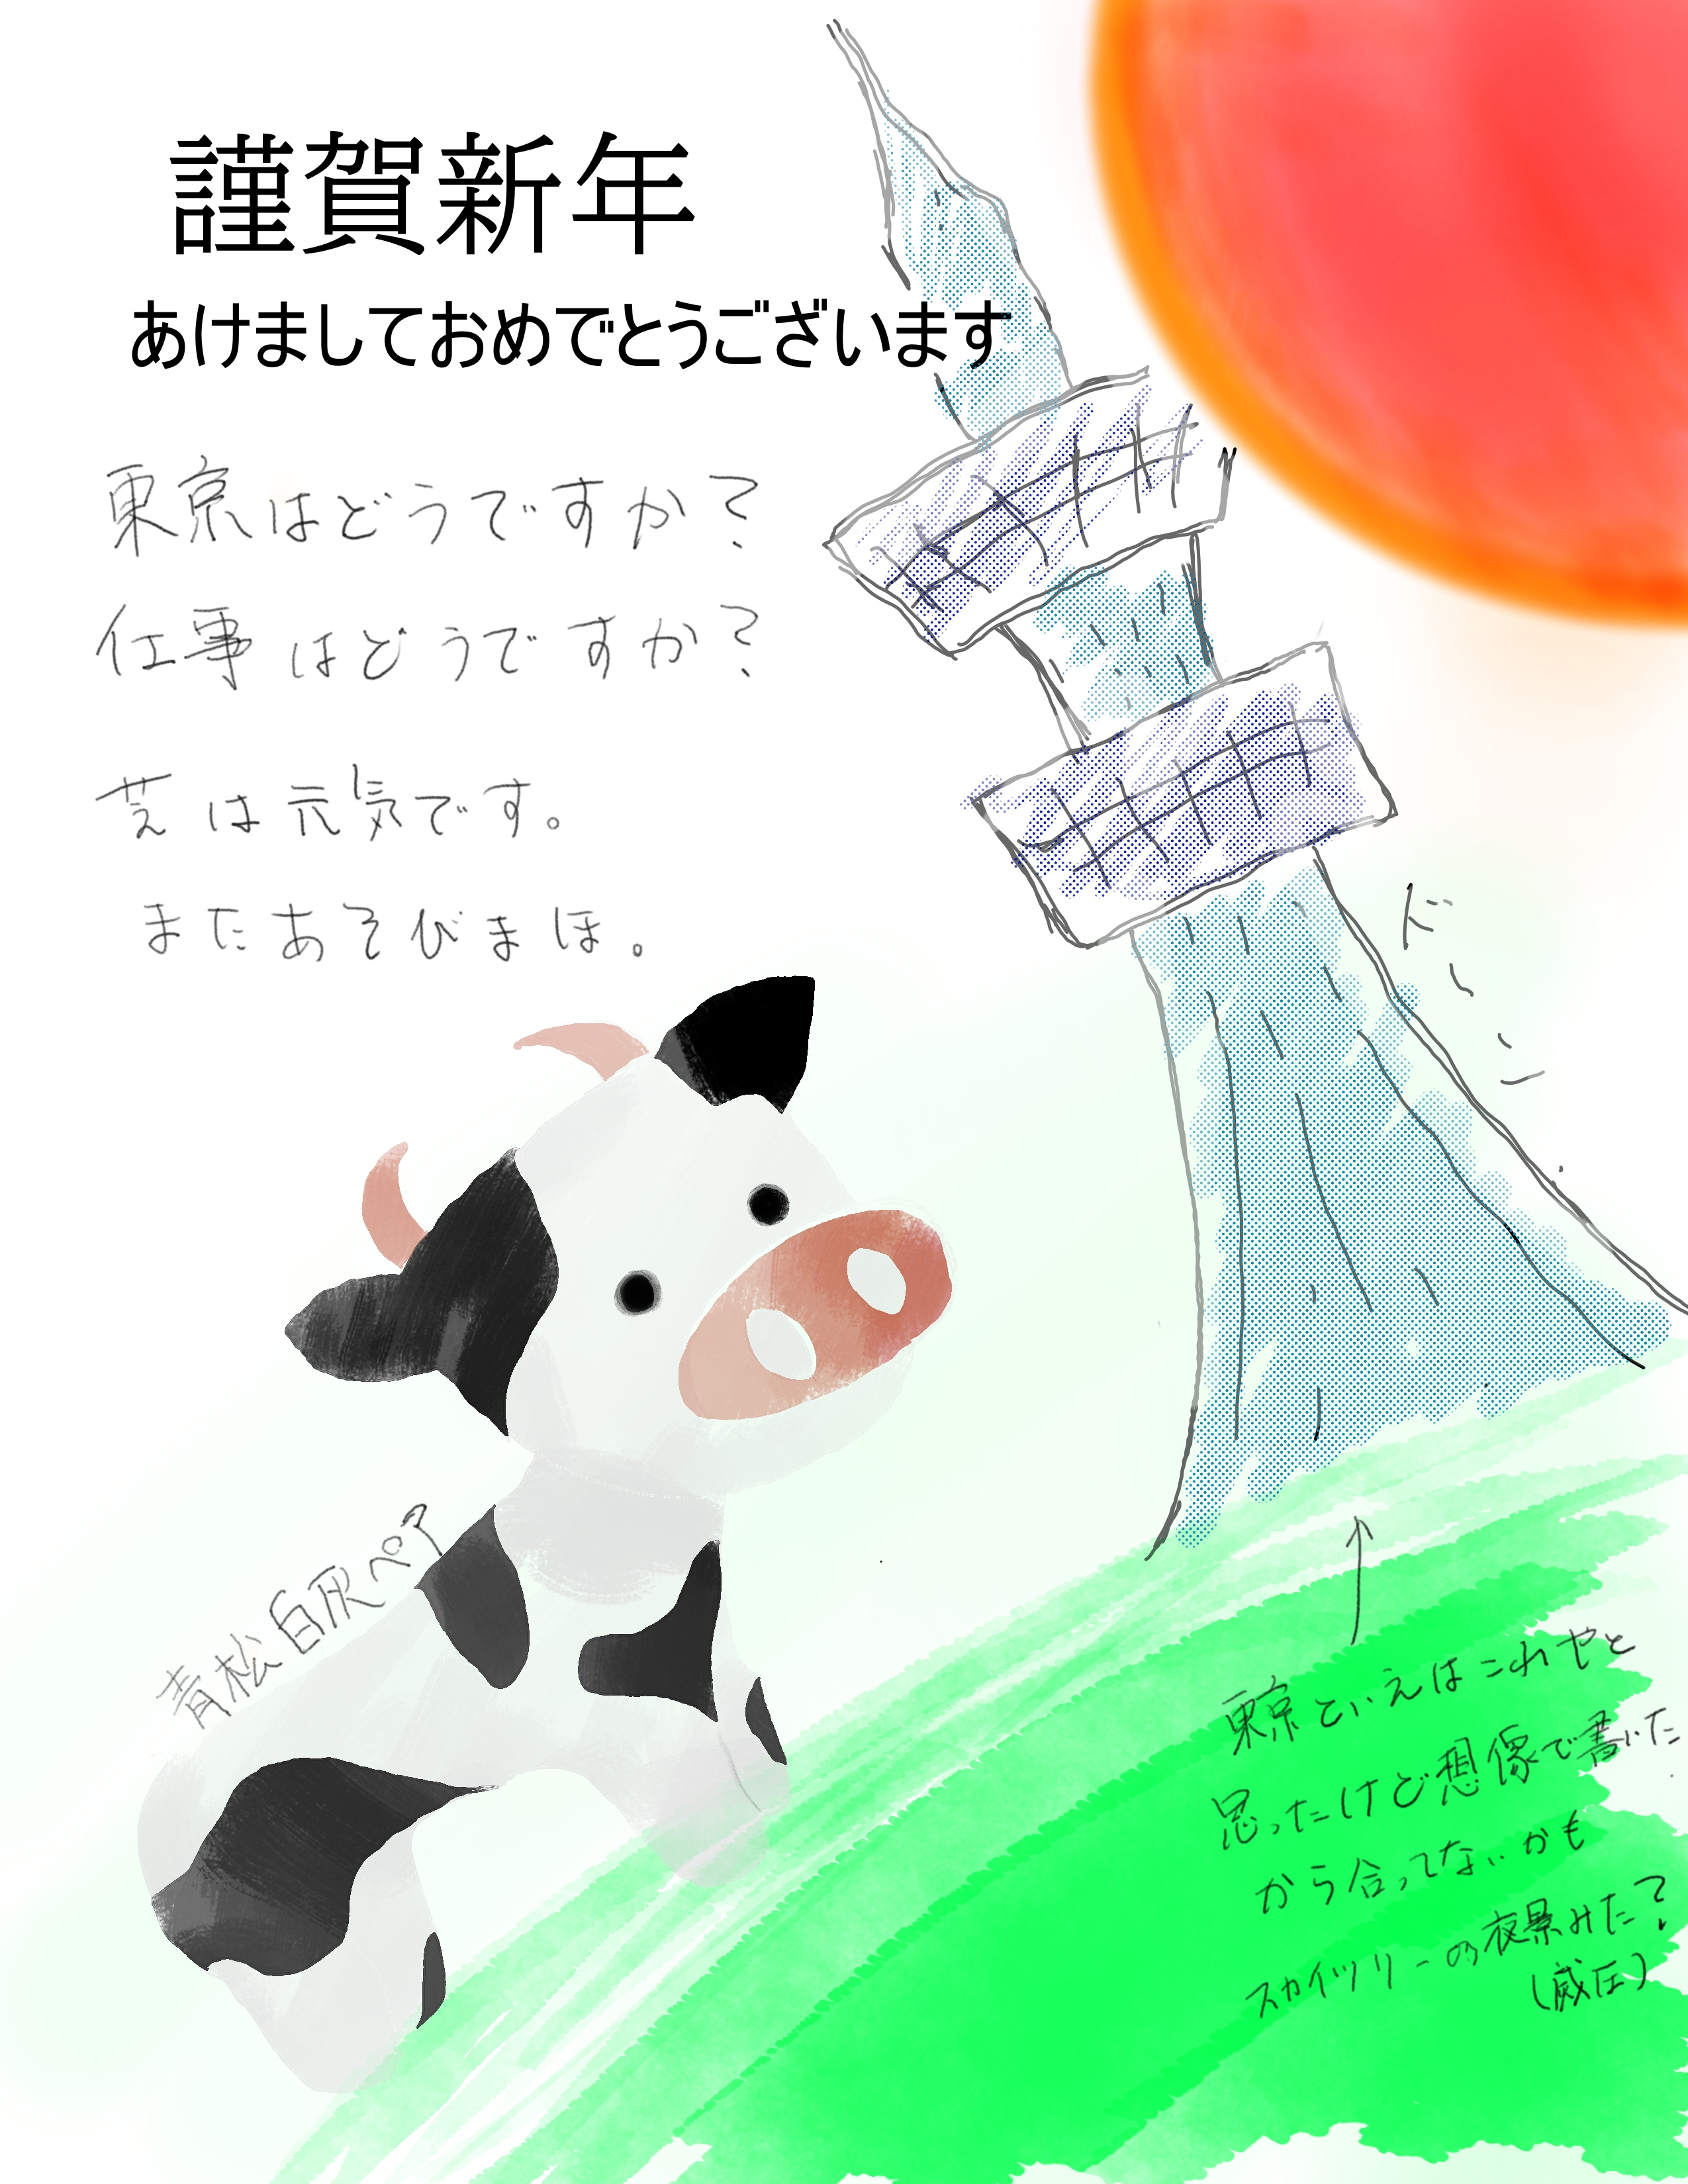 謹賀新年
あけましておめでとうございます
東京はどうですか?
仕事はどうですか?
芝は元気です。
またあそびまほ。
ドーン
青松白灰ペア
↑
東京といえばこれやと
思ったけど想像で書いた
から合ってないかも
スカイツリーの夜景みた?
(威圧)